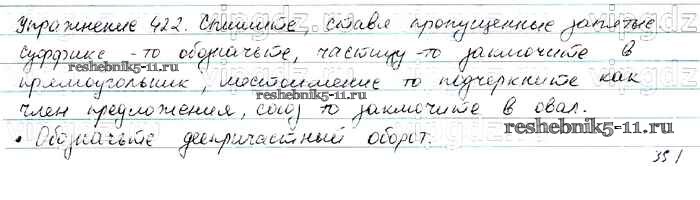 Упражнение 422. Спишите, ставя пропущенные запятые
Суффикс -то обозначьте, частицу -то заключите в
прямоугольник, местоимение то подчеркните как
член предложения, союз то заключите в овал.
• Обозначьте деепричастный оборот.
reshebnik5-11.ru
reshebnik5-11.ru
reshebnik5-11.ru
351